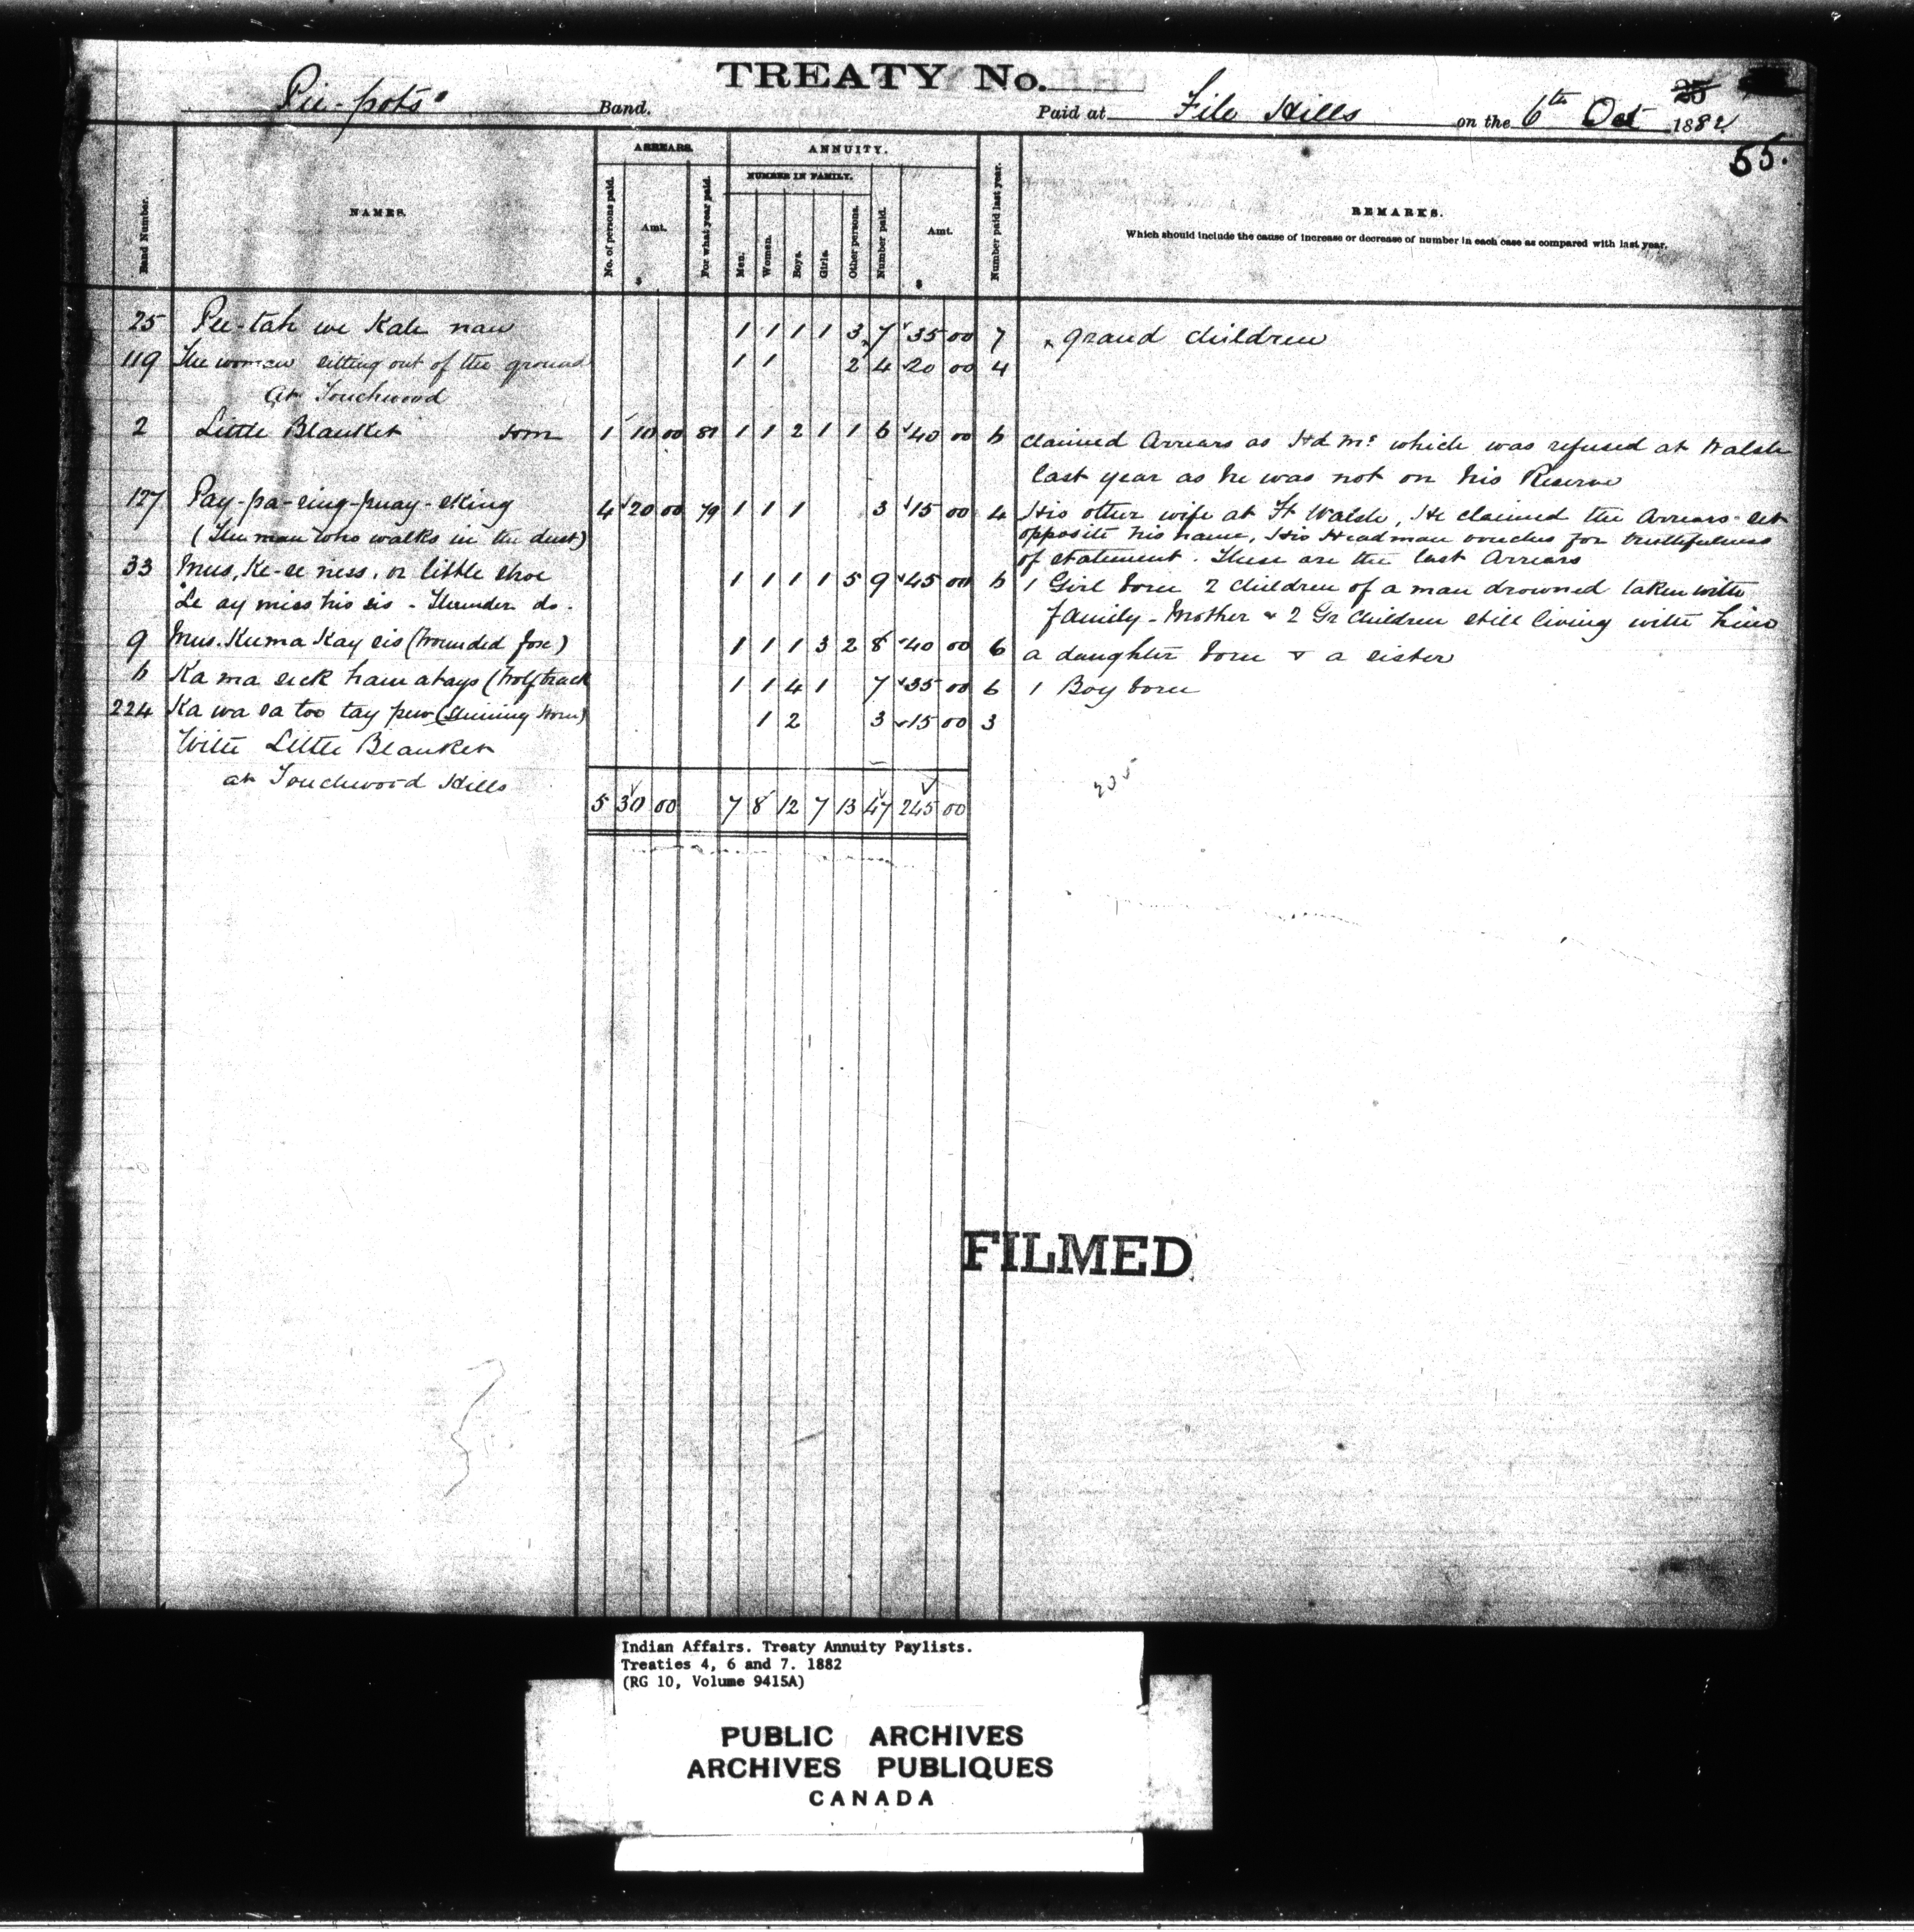 TREATY No.
Pie-pots' Band. Paid at File Hills on the 6th Oct 1882
55.
Band Number. NAMES. ARREARS. No. of persons paid. Amt. $ For what year paid. ANNUITY. NUMBER IN FAMILY. Men. Women. Boys. Girls. Other persons. Number paid. Amt. $ Number paid last year. REMARKS.
Which should include the cause of increase or decrease of number in each case as compared with last year.
25 Pee-tah we Kah naw 1 1 1 1 3 7 35 00 7 x grand children
119 The woman sitting out of the ground 1 1 2 4 20 00 4
At Touchwood
2 Little Blanket 1 10 00 81 1 1 2 1 1 6 40 00 6 claimed Arrears as Hd Mn which was refused at Walsh
last year as he was not on his Reserve
127 Pay-pa-sing-puay-sking 4 20 00 79 1 1 1 3 15 00 4 His other wife at Ft Walsh, He claimed the Arrears set
(The man who walks in the dust) opposite his name, His Headman vouches for truthfulness
of statement. These are the last Arrears
33 Mus, Ke-se ness, or little shoe 1 1 1 1 5 9 45 00 6 1 Girl born 2 children of a man drowned taken with
Le ay miss his sis - Thunder do. family - Mother & 2 Gr children still living with him
9 Mus. Kuma Kay sis (Wounded fox) 1 1 1 3 2 8 40 00 6 a daughter born & a sister
6 Ka ma sick ham atays (Wolftrack 1 1 4 1 7 35 00 6 1 Boy born
224 Ka wa sa too tay pew (Shining Horn) 1 2 3 15 00 3
With Little Blanket
at Touchwood Hills
5 30 00 7 8 12 7 13 47 245 00
235
FILMED
Indian Affairs. Treaty Annuity Paylists.
Treaties 4, 6 and 7. 1882
(RG 10, Volume 9415A)
PUBLIC ARCHIVES
ARCHIVES PUBLIQUES
CANADA